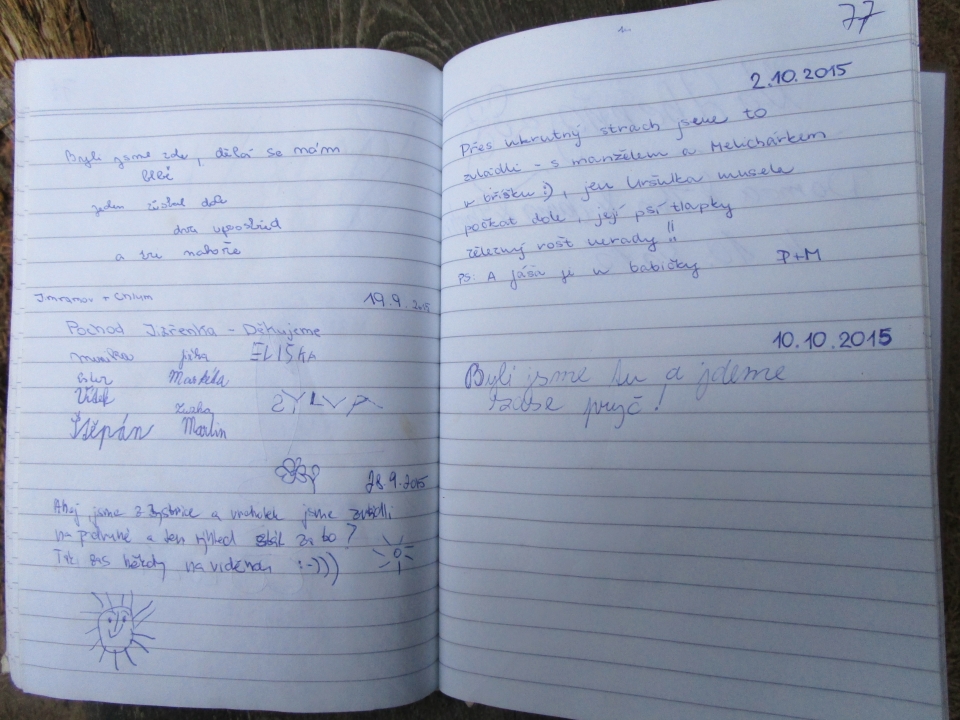 Byli jsme zde, dělá se nám
blbě
jeden zůstal dole
dva uprostřed
a tři nahoře
Jimramov + Chlum
19.9.2015
Pochod Jizřenka - Děkujeme
Jitka ELIŠKA
Ester Markéta
Vítek
SYLVA
Štěpán Martin
28.9.2015
Ahoj jsme z Bystřice a vrcholek jsme zvládli
na podruhé a ten výhled stál za to?
Tak zas někdy na viděnou :-)))
77
2.10.2015
Přes ukrutný strach jsme to
zvládli - s manželem a Melichárkem
v bříšku :), jen Uršulka musela
počkat dole, její psí tlapky
železný rošt nerady!!
PS: A Jáša je u babičky P+M
10.10.2015
Byli jsme tu a jdeme
zase pryč!